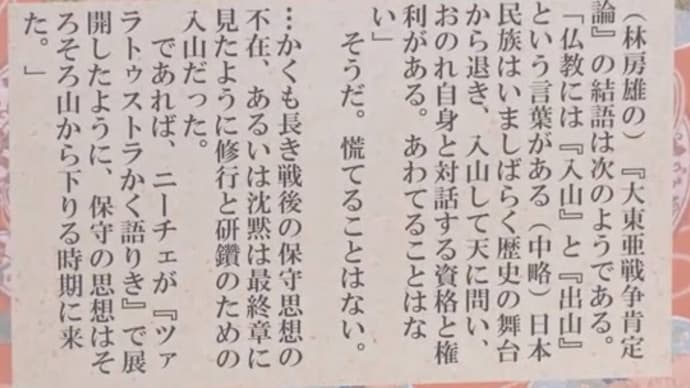 （林房雄の）『大東亜戦争肯定
論』の結語は次のようである。
「仏教には『入山』と『出山』
という言葉がある（中略）日本
民族はいましばらく歴史の舞台
から退き、入山して天に問い、
おのれ自身と対話する資格と権
利がある。あわてることはな
い」
そうだ。慌てることはない。
…かくも長き戦後の保守思想の
不在、あるいは沈黙は最終章に
見たように修行と研鑽のための
入山だった。
であれば、ニーチェが『ツァ
ラトゥストラかく語りき』で展
開したように、保守の思想はそ
ろそろ山から下りる時期に来
た。」